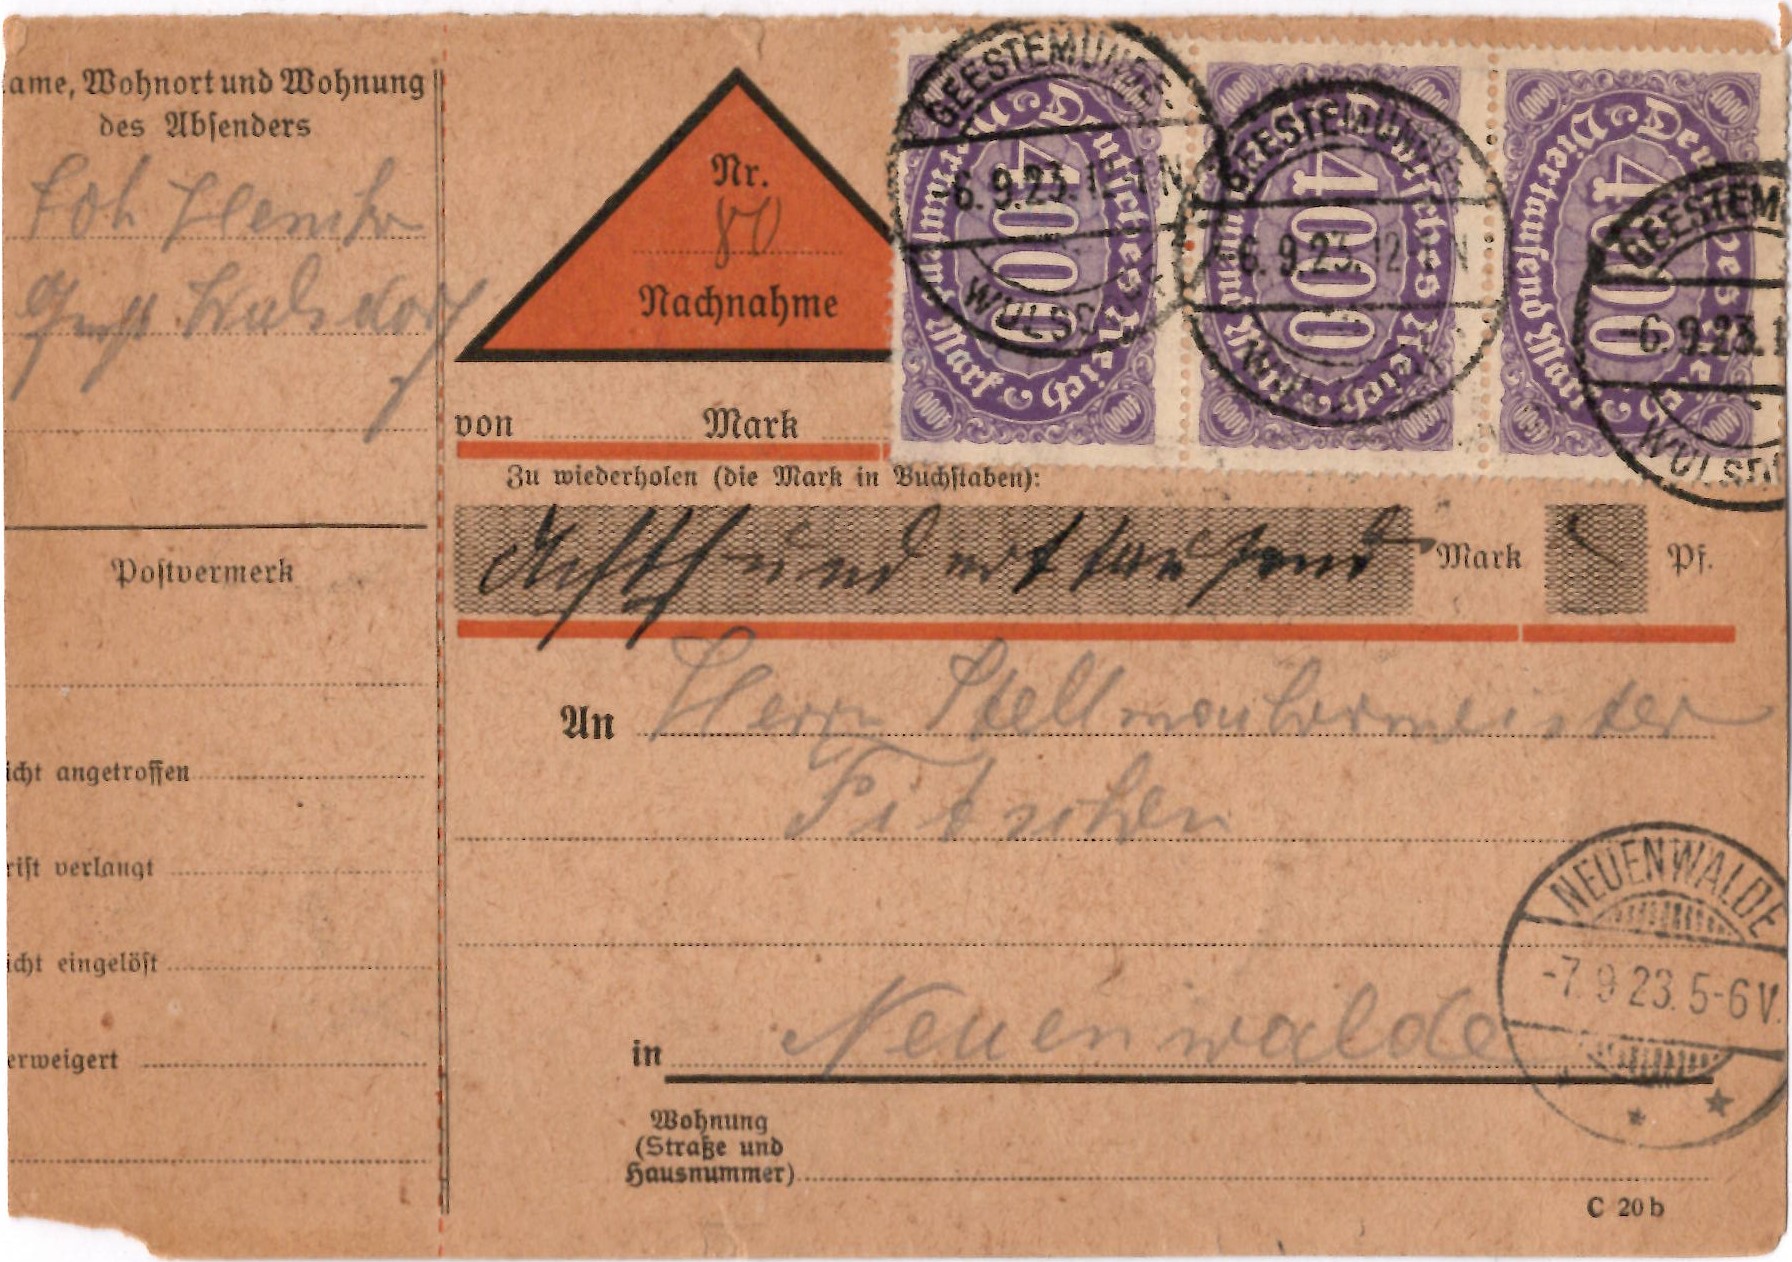 ame, Wohnort und Wohnung
des Absenders
Joh
Nr.
80
Nachnahme
von Mark
Zu wiederholen (die Mark in Buchstaben):
Achthunderttausend Mark Pf.
Postvermerk
An Herrn Stellmachermeister
Fitschen
icht angetroffen
rift verlangt
icht eingelöst
erweigert
in Neuenwalde
Wohnung
(Straße und
Hausnummer)
C 20 b
GEESTEMÜNDE-
-6.9.23. 12-1 N
WULSDORF
GEESTEMÜNDE-
-6.9.23. 12-1 N
GEESTEM
-6.9.23. 1
WULSD
Deutsches Reich
4000
Viertausend Mark
Deutsches Reich
4000
Viertausend Mark
Deutsches Reich
4000
Viertausend Mark
NEUENWALDE
-7.9.23. 5-6 V.